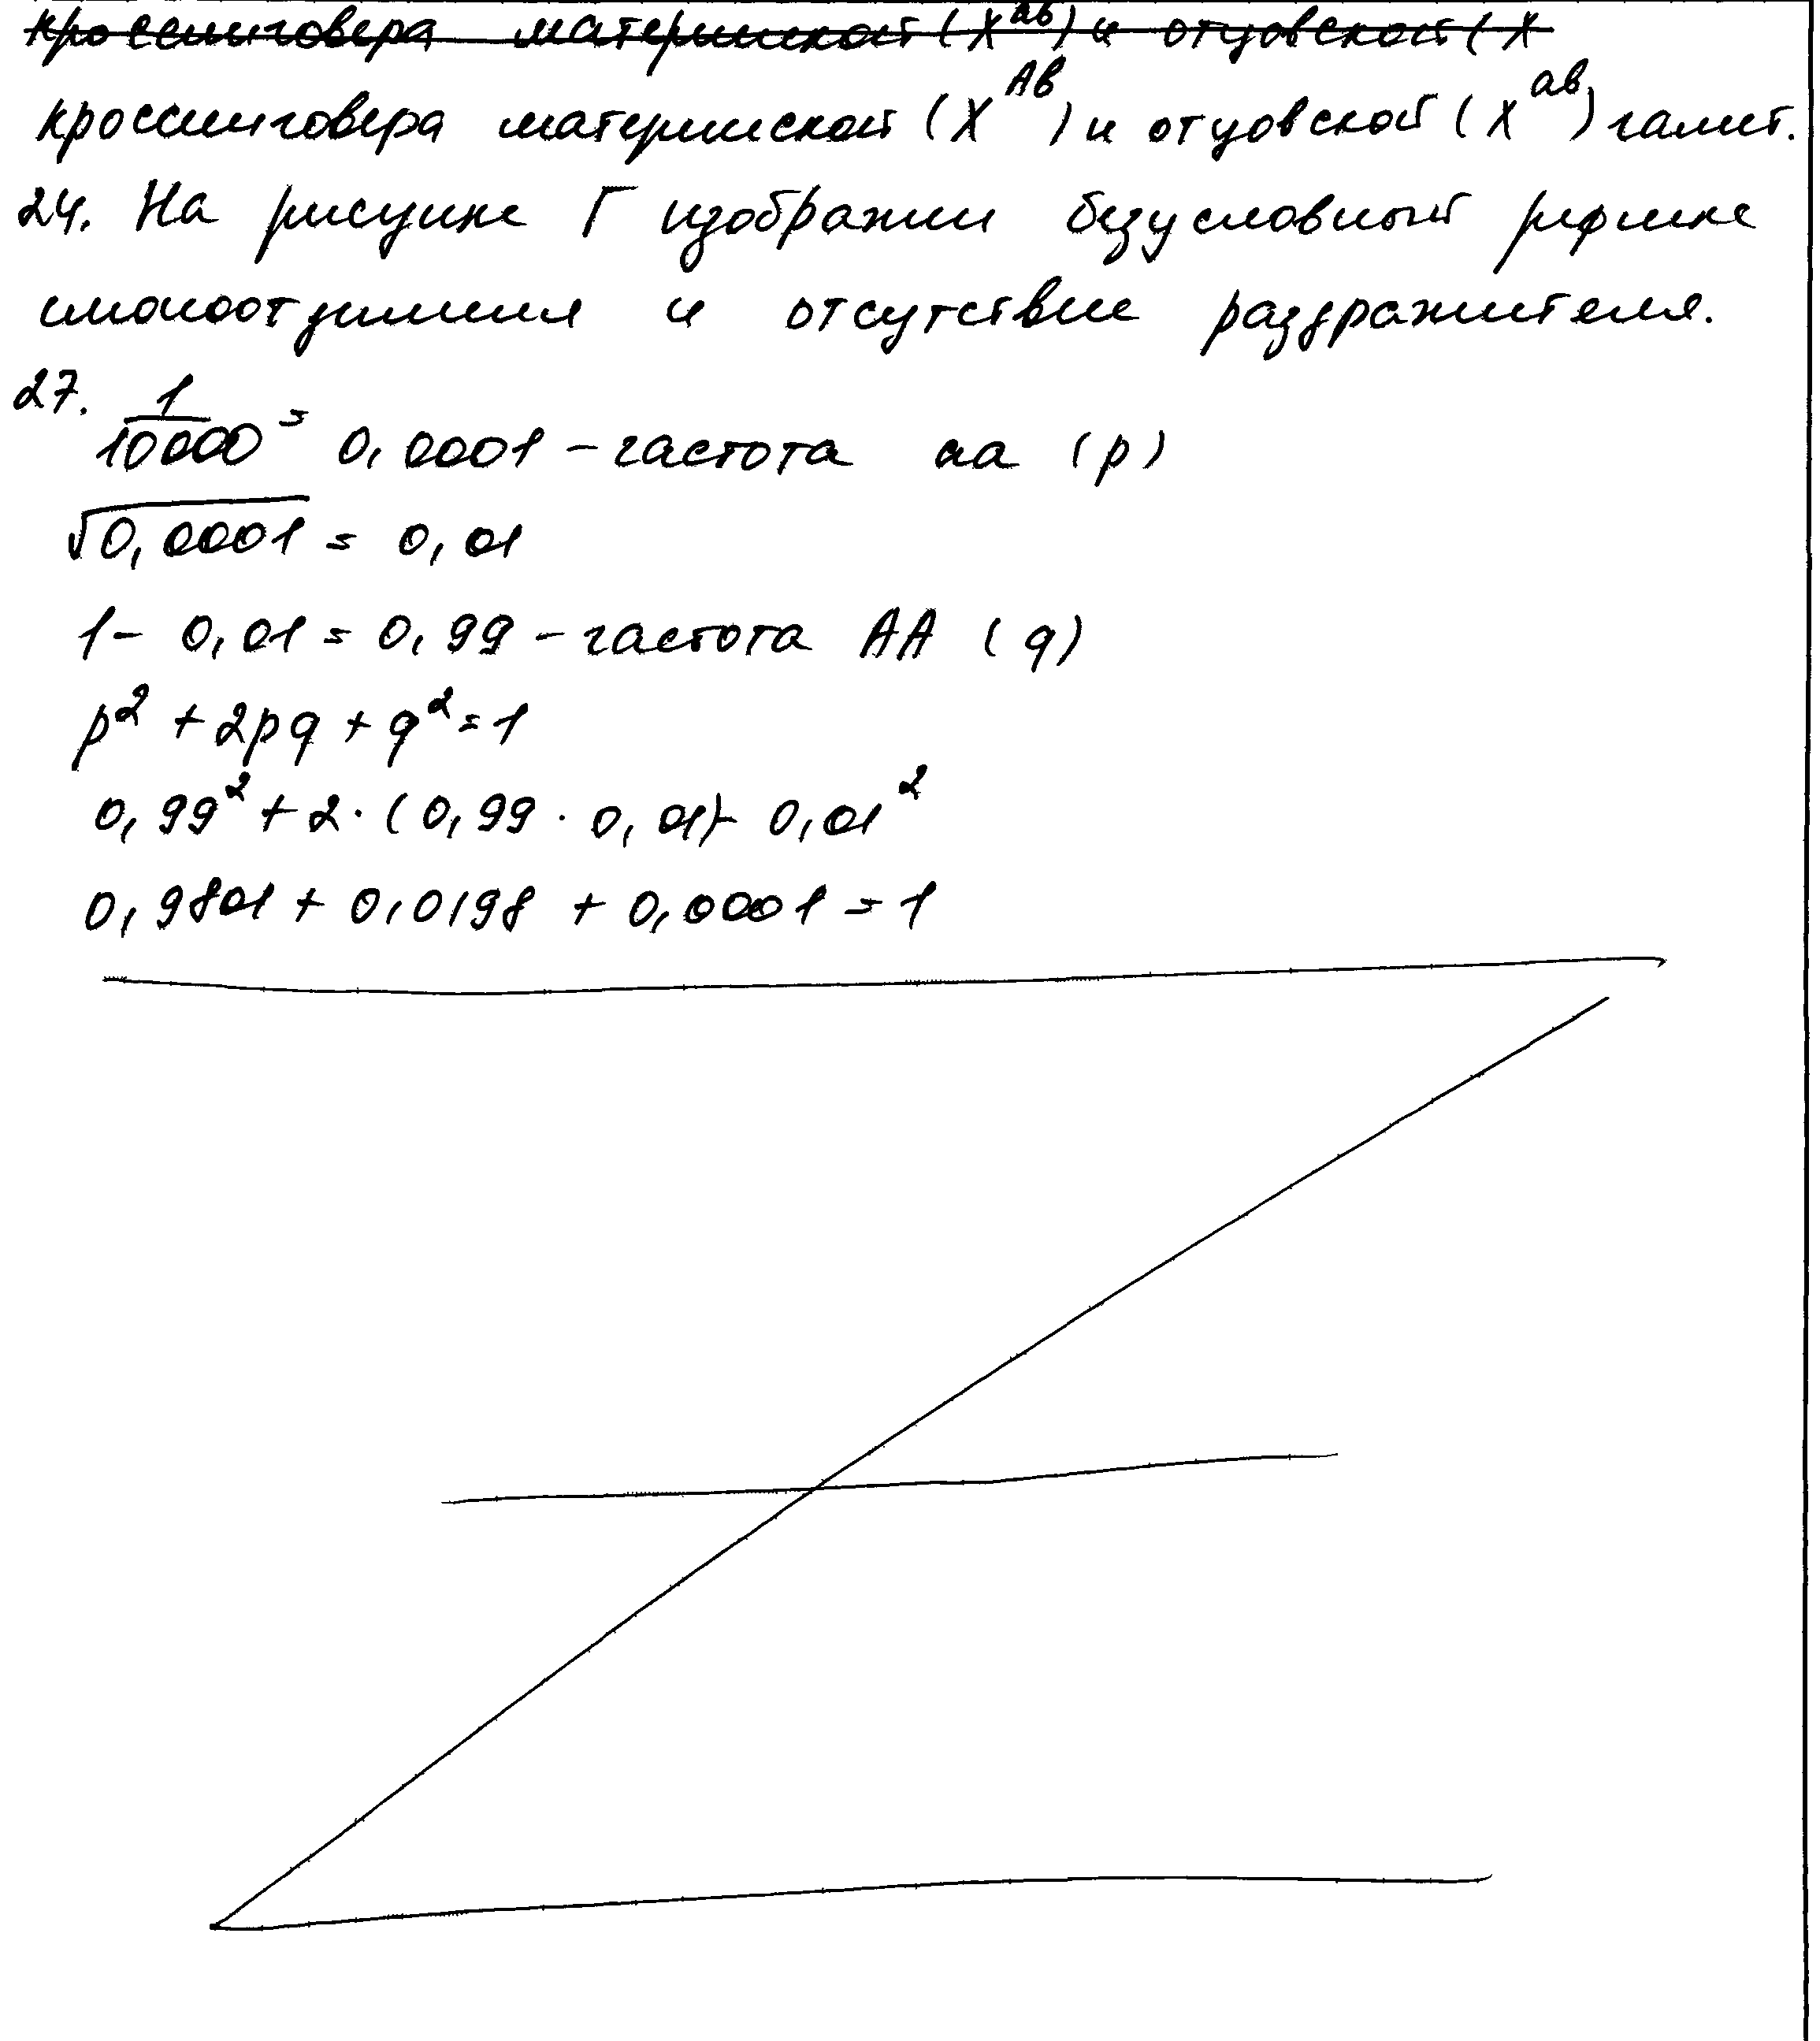 кроссинговера материнской (X^ав) и отцовской (X
кроссинговера материнской (X^Ав) и отцовской (X^ав) гамет.
24. На рисунке Г изображен безусловный рефлекс
слюноотделения и отсутствие раздражителя.
27. 1/10000 = 0,0001 - частота аа (p)
√0,0001 = 0,01
1 - 0,01 = 0,99 - частота АА (q)
p² + 2pq + q² = 1
0,99² + 2 · (0,99 · 0,01) + 0,01²
0,9801 + 0,0198 + 0,0001 = 1